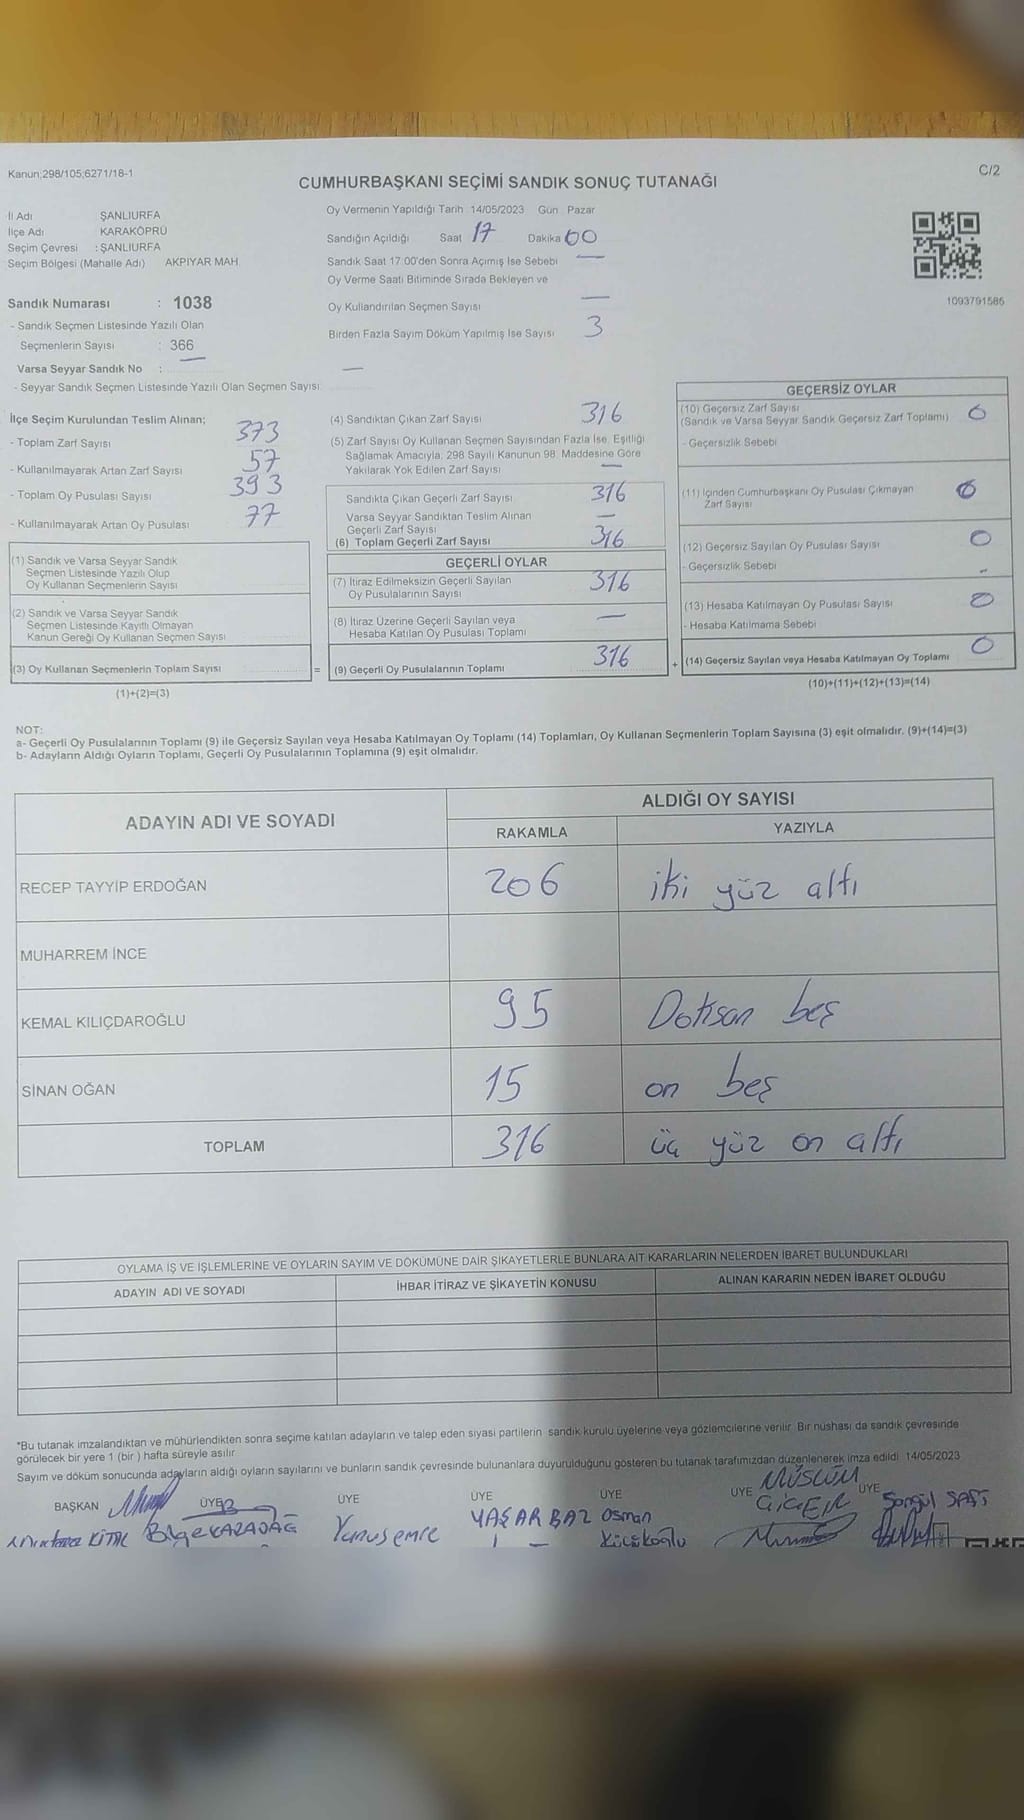 Kanun;298/105;6271/18-1
C/2
CUMHURBAŞKANI SEÇİMİ SANDIK SONUÇ TUTANAĞI
İl Adı ŞANLIURFA
İlçe Adı KARAKÖPRÜ
Seçim Çevresi : ŞANLIURFA
Seçim Bölgesi (Mahalle Adı) AKPIYAR MAH.
Oy Vermenin Yapıldığı Tarih 14/05/2023 Gün Pazar
Sandığın Açıldığı Saat 17 Dakika 00
Sandık Saat 17:00'den Sonra Açımış İse Sebebi —
Oy Verme Saati Bitiminde Sırada Bekleyen ve
Oy Kullandırılan Seçmen Sayısı —
Birden Fazla Sayım Döküm Yapılmış İse Sayısı 3
1093791586
Sandık Numarası : 1038
- Sandık Seçmen Listesinde Yazılı Olan
Seçmenlerin Sayısı : 366
Varsa Seyyar Sandık No : —
- Seyyar Sandık Seçmen Listesinde Yazılı Olan Seçmen Sayısı —
İlçe Seçim Kurulundan Teslim Alınan;
- Toplam Zarf Sayısı 373
- Kullanılmayarak Artan Zarf Sayısı 57
- Toplam Oy Pusulası Sayısı 393
- Kullanılmayarak Artan Oy Pusulası 77
(1) Sandık ve Varsa Seyyar Sandık
Seçmen Listesinde Yazılı Olup
Oy Kullanan Seçmenlerin Sayısı
(2) Sandık ve Varsa Seyyar Sandık
Seçmen Listesinde Kayıtlı Olmayan
Kanun Gereği Oy Kullanan Seçmen Sayısı
(3) Oy Kullanan Seçmenlerin Toplam Sayısı =
(1)+(2)=(3)
(4) Sandıktan Çıkan Zarf Sayısı 316
(5) Zarf Sayısı Oy Kullanan Seçmen Sayısından Fazla İse, Eşitliği
Sağlamak Amacıyla, 298 Sayılı Kanunun 98. Maddesine Göre
Yakılarak Yok Edilen Zarf Sayısı —
Sandıkta Çıkan Geçerli Zarf Sayısı 316
Varsa Seyyar Sandıktan Teslim Alınan —
Geçerli Zarf Sayısı
(6) Toplam Geçerli Zarf Sayısı 316
GEÇERLİ OYLAR
(7) İtiraz Edilmeksizin Geçerli Sayılan 316
Oy Pusulalarının Sayısı
(8) İtiraz Üzerine Geçerli Sayılan veya —
Hesaba Katılan Oy Pusulası Toplamı
(9) Geçerli Oy Pusulalarının Toplamı 316 +
GEÇERSİZ OYLAR
(10) Geçersiz Zarf Sayısı 0
(Sandık ve Varsa Seyyar Sandık Geçersiz Zarf Toplamı)
- Geçersizlik Sebebi
(11) İçinden Cumhurbaşkanı Oy Pusulası Çıkmayan 0
Zarf Sayısı
(12) Geçersiz Sayılan Oy Pusulası Sayısı 0
- Geçersizlik Sebebi -
(13) Hesaba Katılmayan Oy Pusulası Sayısı 0
- Hesaba Katılmama Sebebi
(14) Geçersiz Sayılan veya Hesaba Katılmayan Oy Toplamı 0
(10)+(11)+(12)+(13)=(14)
NOT:
a- Geçerli Oy Pusulalarının Toplamı (9) ile Geçersiz Sayılan veya Hesaba Katılmayan Oy Toplamı (14) Toplamları, Oy Kullanan Seçmenlerin Toplam Sayısına (3) eşit olmalıdır. (9)+(14)=(3)
b- Adayların Aldığı Oyların Toplamı, Geçerli Oy Pusulalarının Toplamına (9) eşit olmalıdır.
ADAYIN ADI VE SOYADI
ALDIĞI OY SAYISI
RAKAMLA YAZIYLA
RECEP TAYYİP ERDOĞAN 206 iki yüz altı
MUHARREM İNCE
KEMAL KILIÇDAROĞLU 95 Doksan beş
SİNAN OĞAN 15 on beş
TOPLAM 316 üç yüz on altı
OYLAMA İŞ VE İŞLEMLERİNE VE OYLARIN SAYIM VE DÖKÜMÜNE DAİR ŞİKAYETLERLE BUNLARA AİT KARARLARIN NELERDEN İBARET BULUNDUKLARI
ADAYIN ADI VE SOYADI İHBAR İTİRAZ VE ŞİKAYETİN KONUSU ALINAN KARARIN NEDEN İBARET OLDUĞU
*Bu tutanak imzalandıktan ve mühürlendikten sonra seçime katılan adayların ve talep eden siyasi partilerin sandık kurulu üyelerine veya gözlemcilerine verilir. Bir nüshası da sandık çevresinde
görülecek bir yere 1 (bir ) hafta süreyle asılır.
Sayım ve döküm sonucunda adayların aldığı oyların sayılarını ve bunların sandık çevresinde bulunanlara duyurulduğunu gösteren bu tutanak tarafımızdan düzenlenerek imza edildi. 14/05/2023
BAŞKAN ÜYE ÜYE ÜYE ÜYE ÜYE ÜYE
Bilge KARADAĞ
Yunus emre
YAŞAR BAZ
Osman
Küçükoğlu
MÜSLÜM
Songül